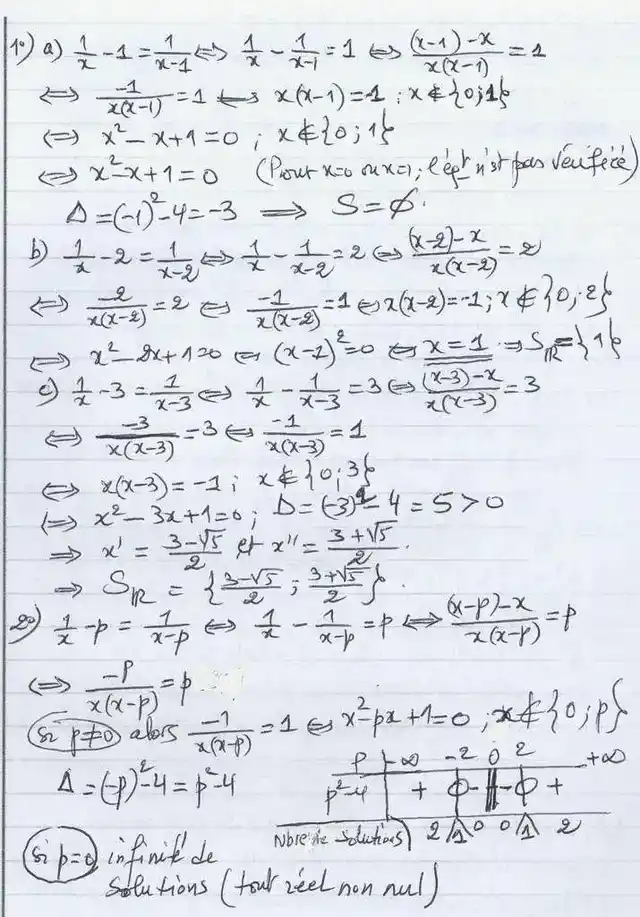 1°) a) 1/x - 1 = 1/(x-1) ⟺ 1/x - 1/(x-1) = 1 ⟺ ((x-1)-x)/(x(x-1)) = 1
⟺ -1/(x(x-1)) = 1 ⟺ x(x-1) = -1 ; x ∉ {0;1}
⟺ x² - x + 1 = 0 ; x ∉ {0;1}
⟺ x² - x + 1 = 0 (Pour x=0 ou x=1, l'égt n'est pas vérifiée)
Δ = (-1)² - 4 = -3 ⟹ S = ∅.
b) 1/x - 2 = 1/(x-2) ⟺ 1/x - 1/(x-2) = 2 ⟺ ((x-2)-x)/(x(x-2)) = 2
⟺ -2/(x(x-2)) = 2 ⟺ -1/(x(x-2)) = 1 ⟺ x(x-2) = -1 ; x ∉ {0, 2}
⟺ x² - 2x + 1 = 0 ⟺ (x-1)² = 0 ⟺ x = 1 ⟹ S_ℝ = {1}
c) 1/x - 3 = 1/(x-3) ⟺ 1/x - 1/(x-3) = 3 ⟺ ((x-3)-x)/(x(x-3)) = 3
⟺ -3/(x(x-3)) = 3 ⟺ -1/(x(x-3)) = 1
⟺ x(x-3) = -1 ; x ∉ {0;3}
⟺ x² - 3x + 1 = 0 ; Δ = (-3)² - 4 = 5 > 0
⟹ x' = (3-√5)/2 et x'' = (3+√5)/2.
⟹ S_ℝ = {(3-√5)/2 ; (3+√5)/2}.
2°) 1/x - p = 1/(x-p) ⟺ 1/x - 1/(x-p) = p ⟺ ((x-p)-x)/(x(x-p)) = p
⟺ -p/(x(x-p)) = p
si p≠0 alors -1/(x(x-p)) = 1 ⟺ x² - px + 1 = 0 , x ∉ {0;p}
Δ = (-p)² - 4 = p² - 4
p -∞ -2 0 2 +∞
p²-4 + 0 - || - 0 +
Nbre de solutions 2 1 0 0 1 2
si p=0 infinité de
solutions (tout réel non nul)